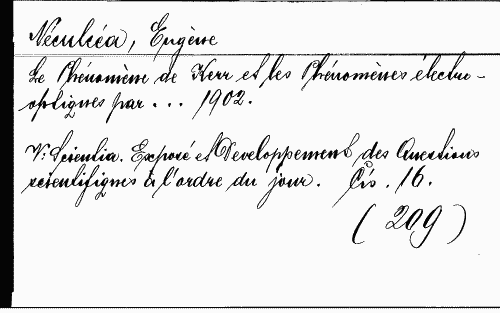 Néculcéa, Eugène
Le Phénomène de Kerr et les Phénomènes électro-
optiques par ... 1902.
V: Scientia. Exposé et Developpement des Questions
scientifiques à l'ordre du jour. 16.
(209)